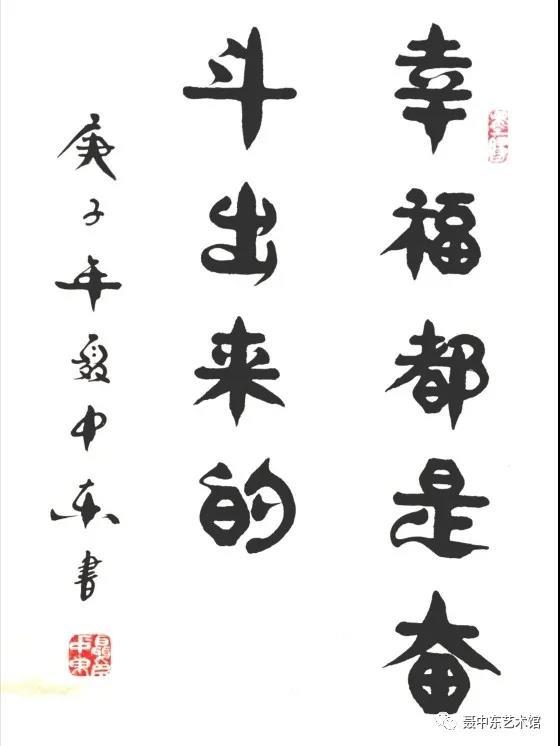 幸福都是奋
斗出来的
庚子年聂中东书
聂中东艺术馆